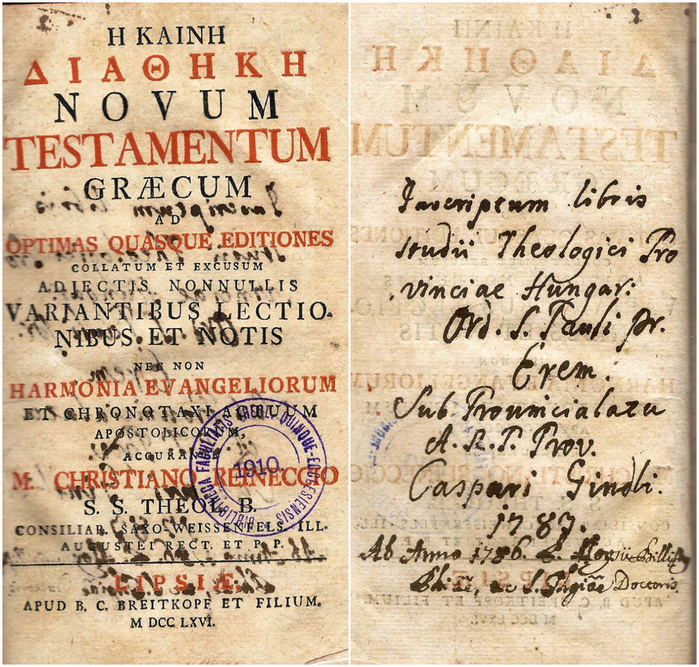 Η ΚΑΙΝΗ
ΔΙΑΘΗΚΗ
NOVUM
TESTAMENTUM
GRÆCUM
AD
OPTIMAS QUASQUE EDITIONES
COLLATUM ET EXCUSUM
ADJECTIS NONNULLIS
VARIANTIBUS LECTIO-
NIBUS ET NOTIS
NEC NON
HARMONIA EVANGELIORUM
ET CHRONOTAXI ACTUUM
APOSTOLICORUM,
ACCURANTE
M. CHRISTIANO REINECCIO
S. S. THEOL. B.
CONSILIAR. SAXO-WEISSENFELS. ILL.
AUGUSTEI RECT. ET P. P.
LIPSIÆ,
APUD B. C. BREITKOPF ET FILIUM.
M DCC LXVI.
QUINQUE-ECCLESIENSIS
1910.
Inscriptum libris
studii Theologici Pro
vinciae Hungar:
Ord. S. Pauli pr.
Erem.
Sub Provincialatu
A. R. P. Prov.
Caspari Gindli.
1783.
Ab Anno 1786.
Doctoris